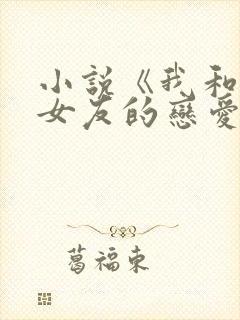 小說《我和
女友的戀愛
葛福東